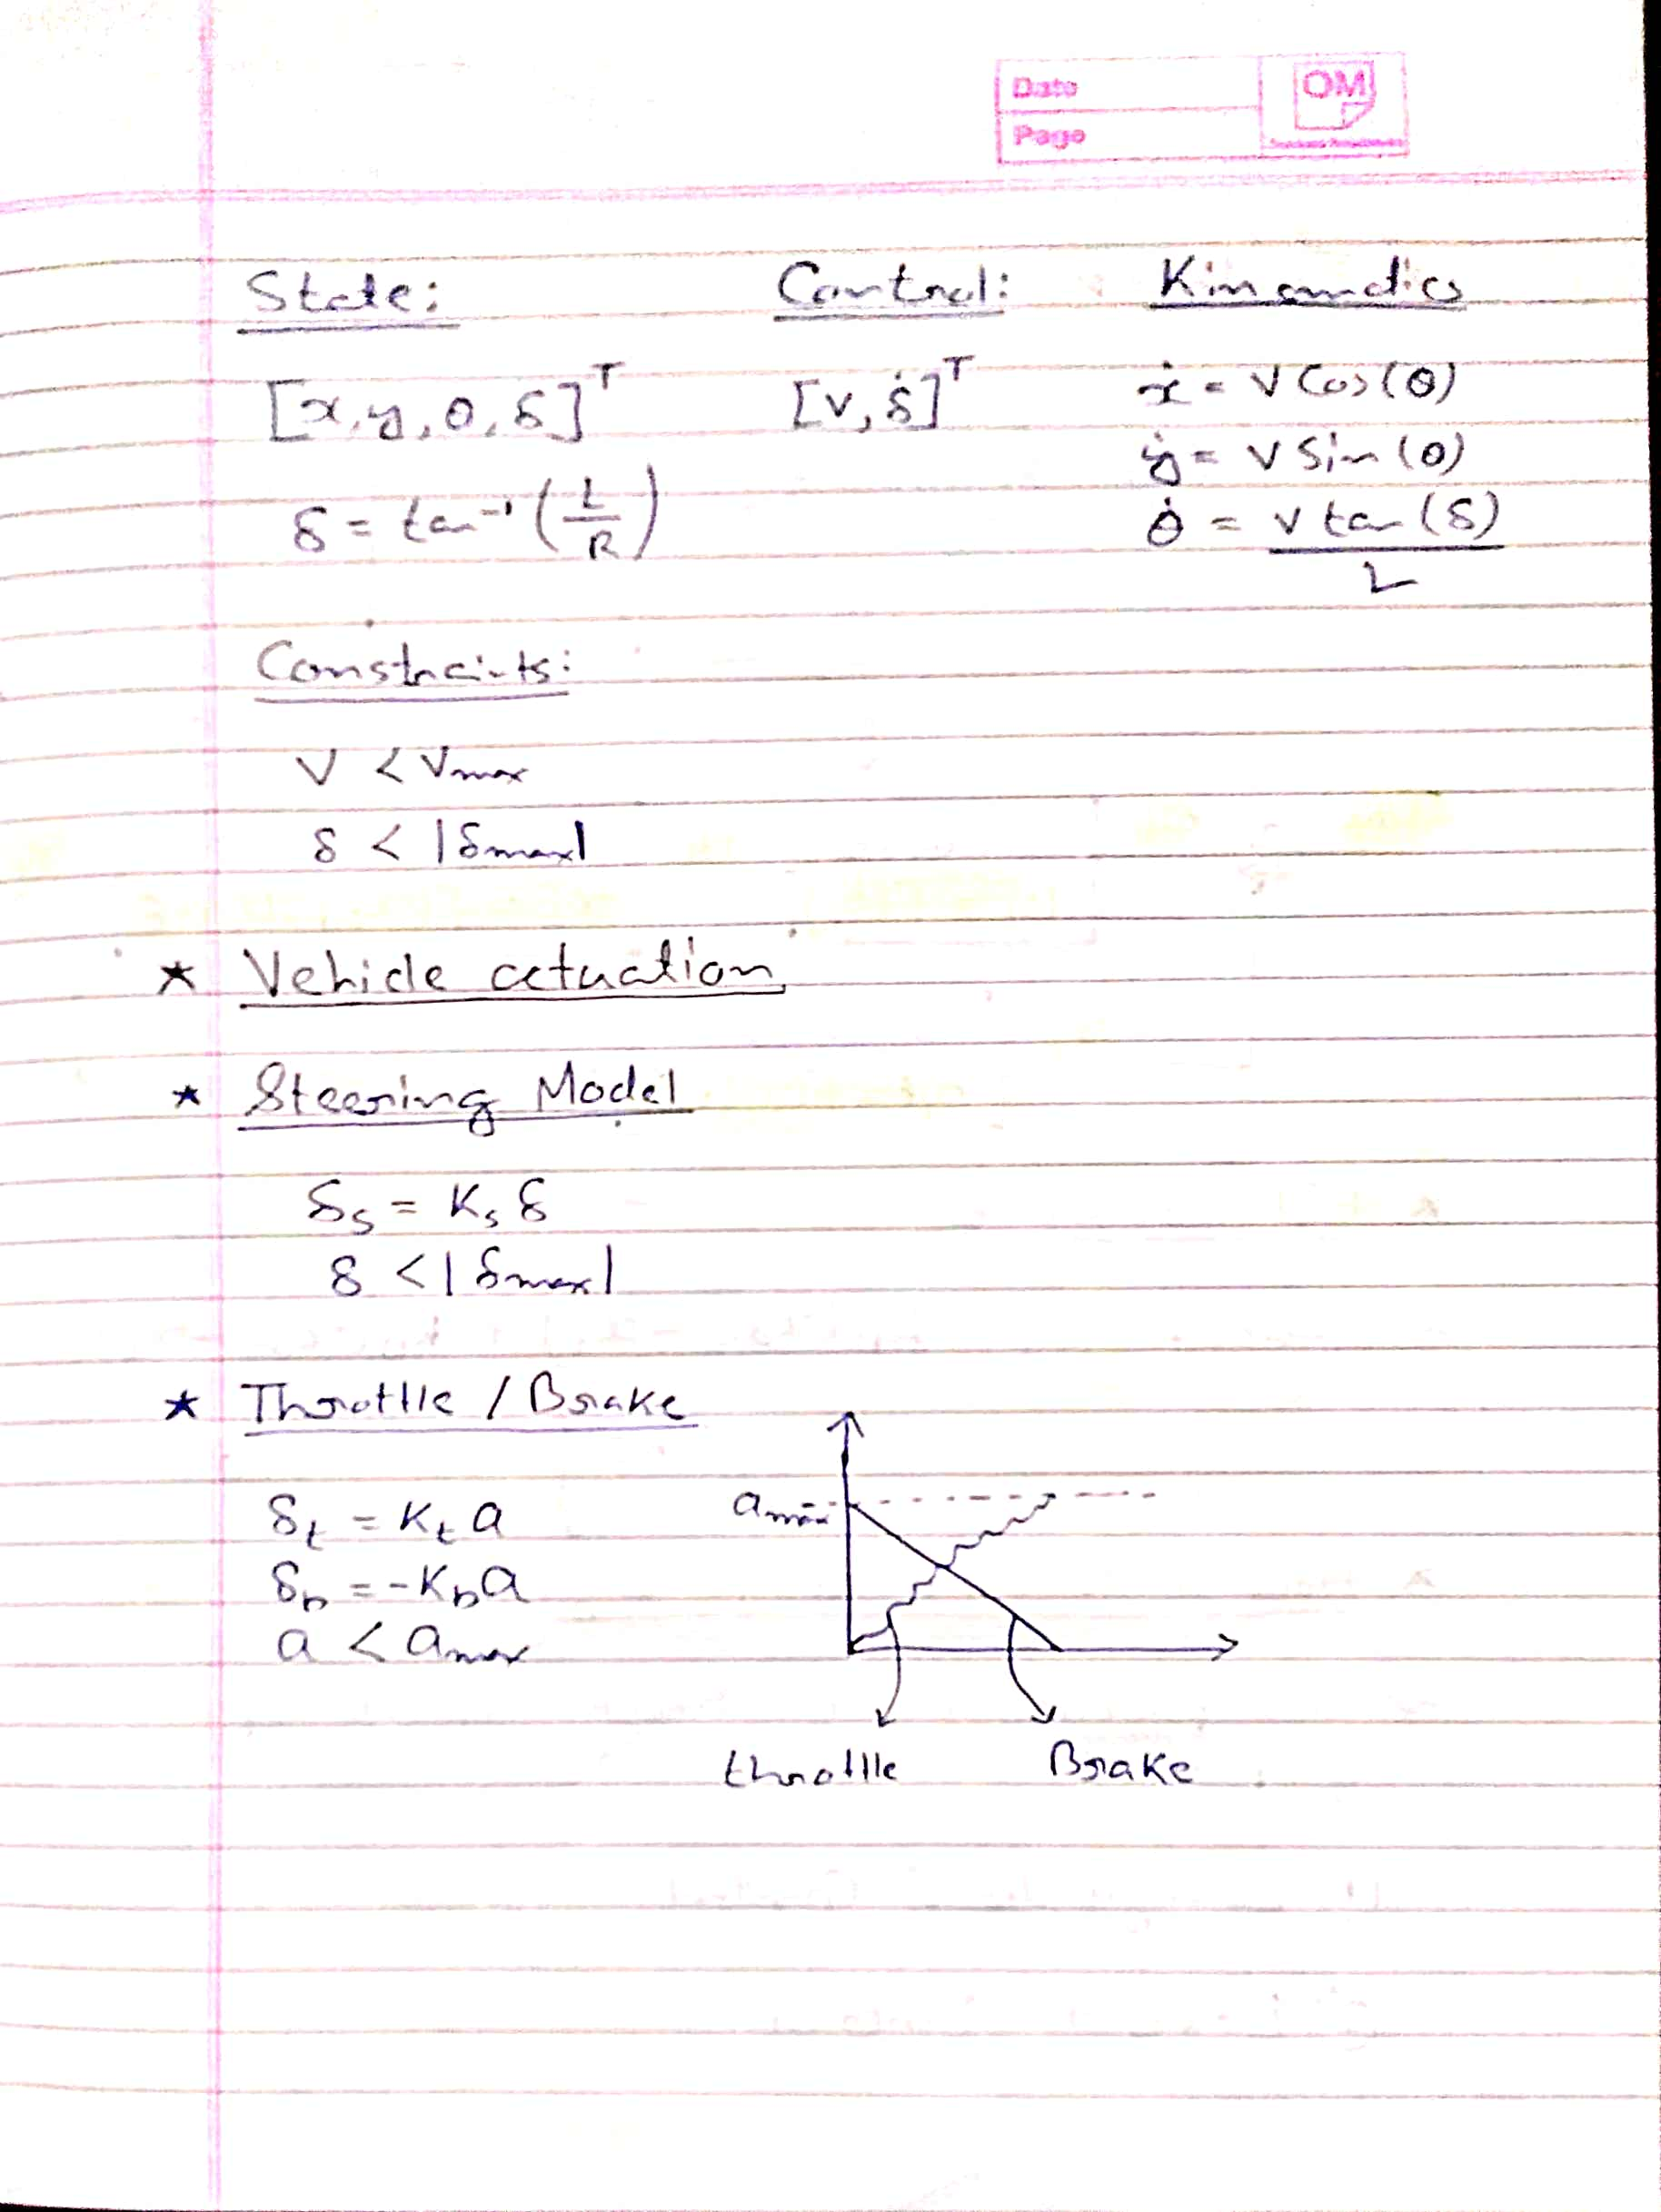 Date
Page
OM
State: Control: Kinematics
[x, y, θ, δ]ᵀ [v, δ̇]ᵀ ẋ = v cos(θ)
ẏ = v sin(θ)
δ = tan⁻¹(L/R) θ̇ = v tan(δ) / L
Constraints:
v < vmax
δ < |δmax|
★ Vehicle actuation
★ Steering Model
δs = Ks δ
δ < |δmax|
★ Throttle / Brake
δt = Kt a
δb = -Kb a
a < amax
amax
throttle Brake